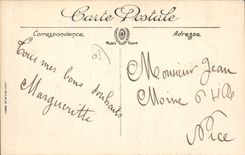 Carte Postale
Correspondance
Adresse
Tous mes bons souhaits
Marguerite
Monsieur Jean
Nice